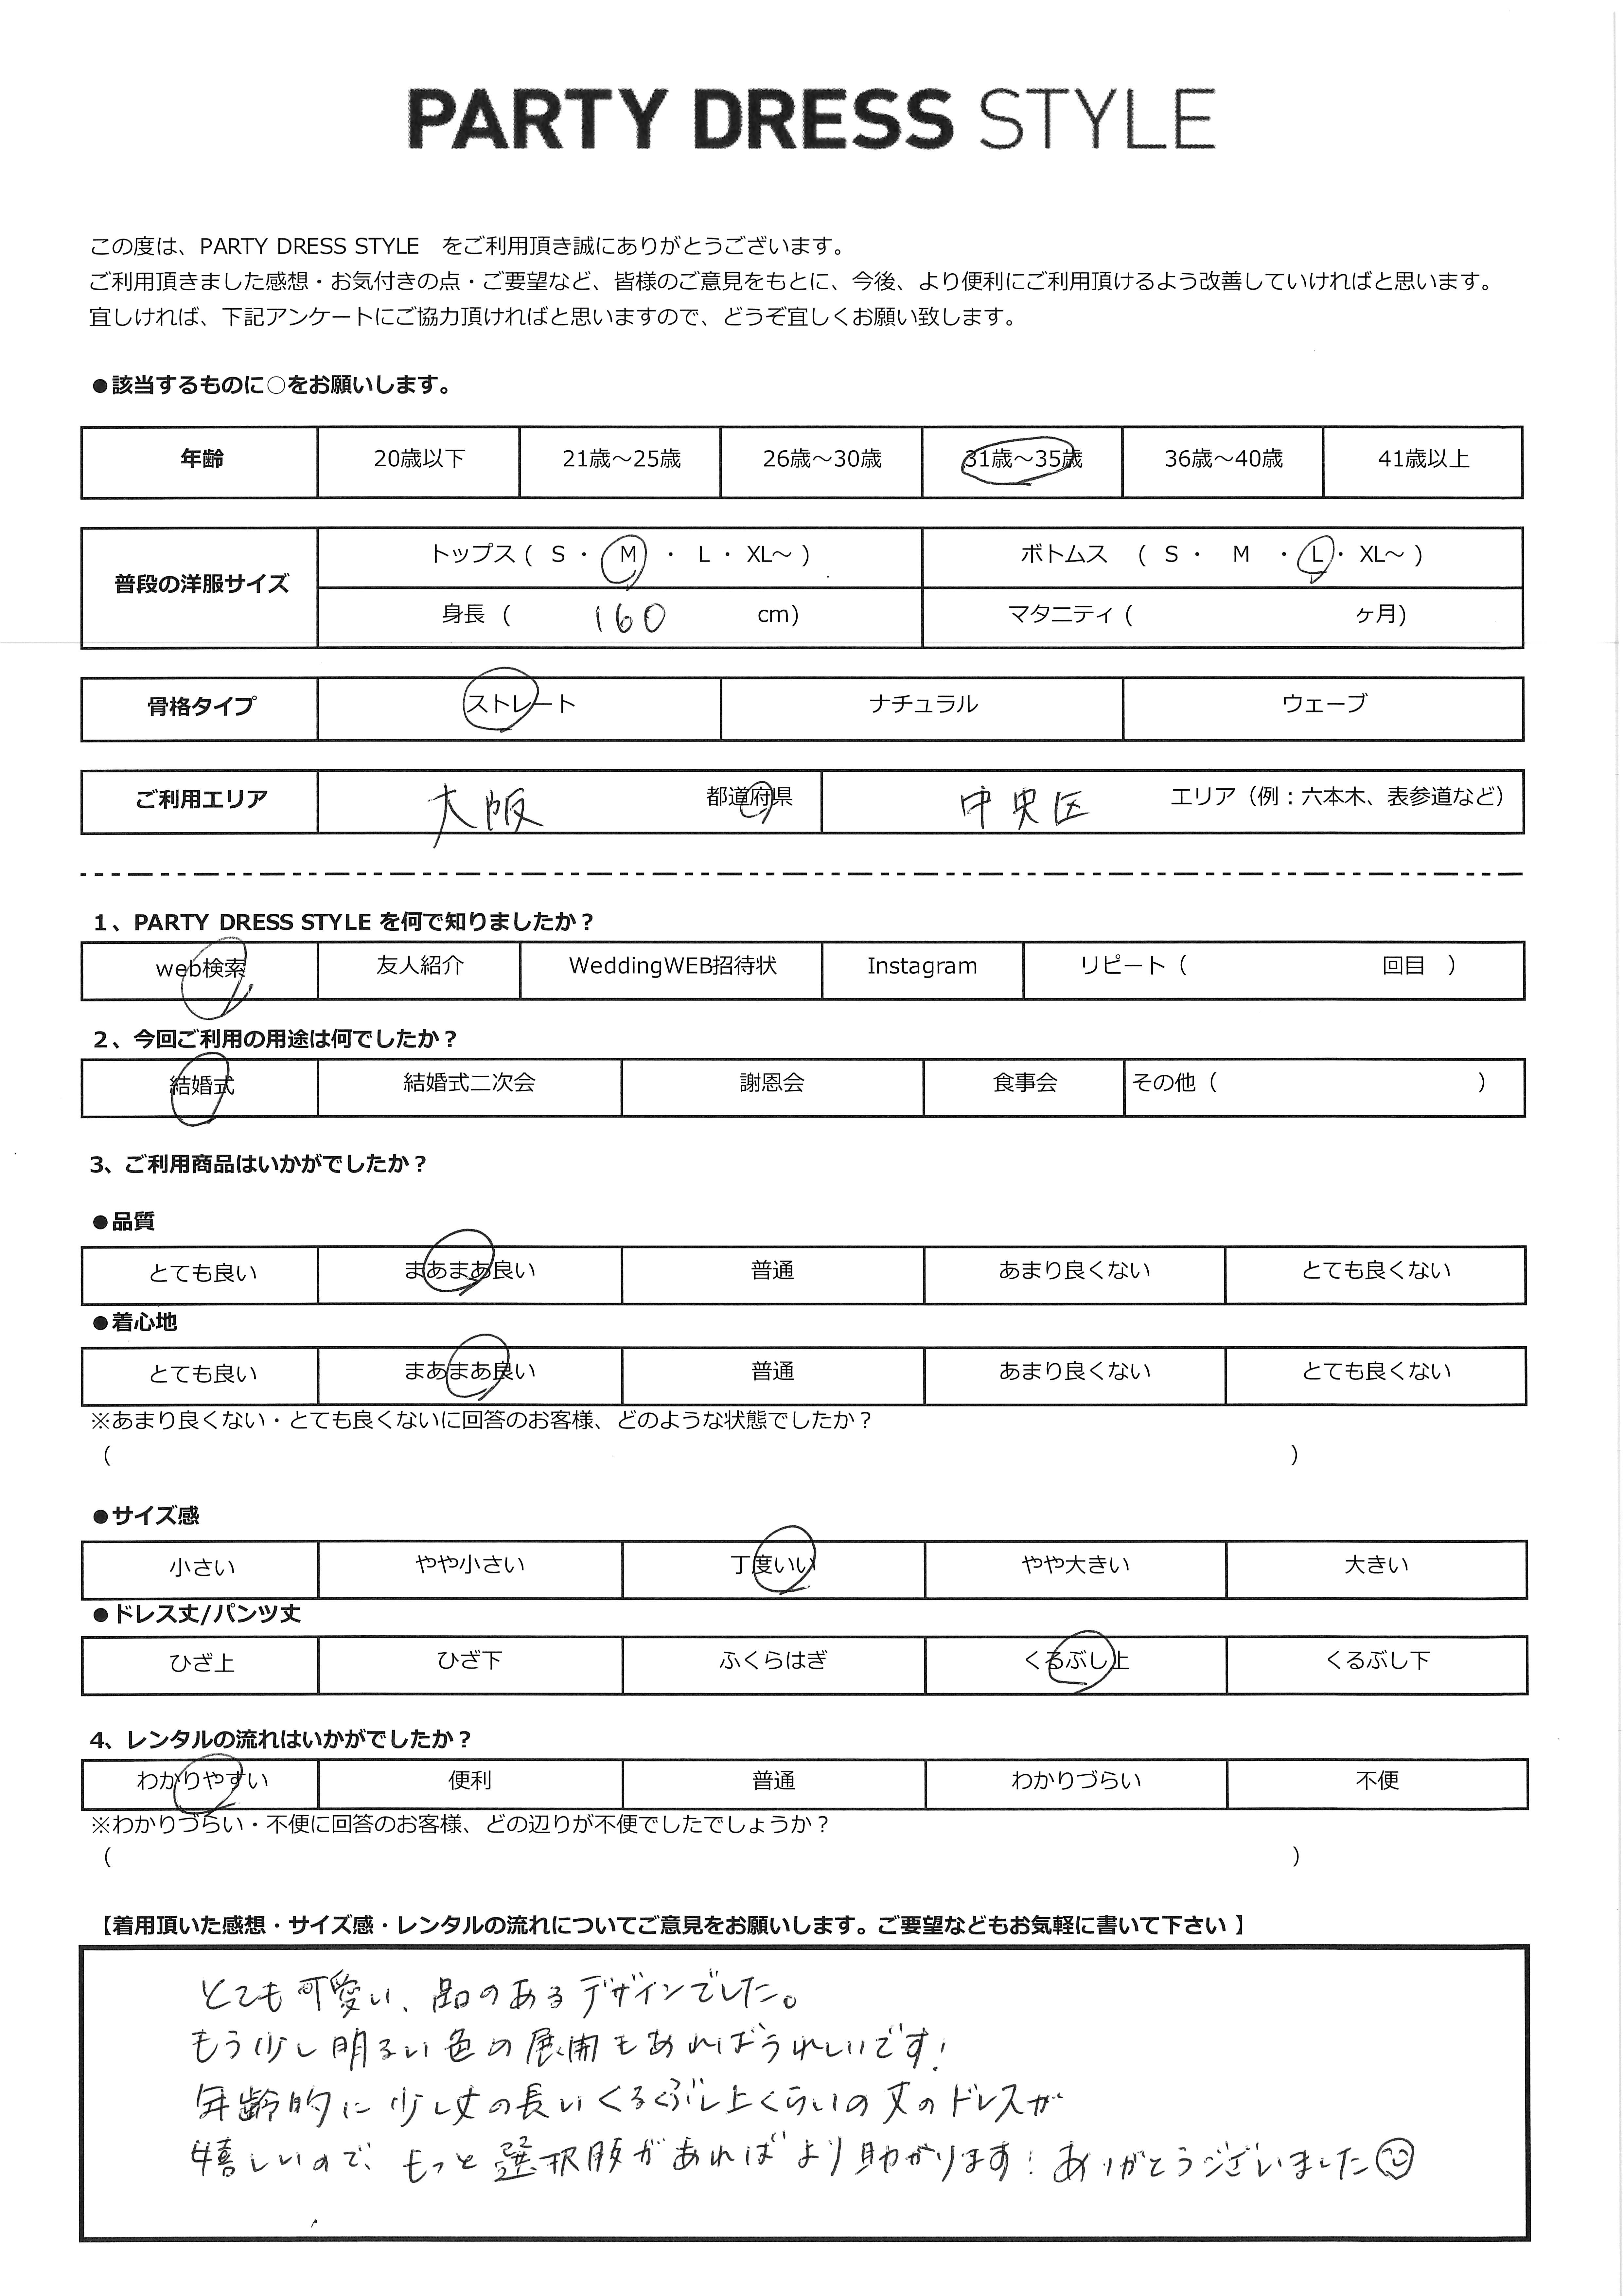 PARTY DRESS STYLE
この度は、PARTY DRESS STYLE をご利用頂き誠にありがとうございます。
ご利用頂きました感想・お気付きの点・ご要望など、皆様のご意見をもとに、今後、より便利にご利用頂けるよう改善していければと思います。
宜しければ、下記アンケートにご協力頂ければと思いますので、どうぞ宜しくお願い致します。
●該当するものに○をお願いします。
年齢 20歳以下 21歳～25歳 26歳～30歳 31歳～35歳 36歳～40歳 41歳以上
普段の洋服サイズ トップス ( S ・ M ・ L ・ XL～ ) ボトムス ( S ・ M ・ L ・ XL～ )
身長 ( 160 cm) マタニティ ( ヶ月)
骨格タイプ ストレート ナチュラル ウェーブ
ご利用エリア 大阪 都道府県 中央区 エリア（例：六本木、表参道など）
1、PARTY DRESS STYLE を何で知りましたか？
web検索 友人紹介 WeddingWEB招待状 Instagram リピート（ 回目 ）
2、今回ご利用の用途は何でしたか？
結婚式 結婚式二次会 謝恩会 食事会 その他（ ）
3、ご利用商品はいかがでしたか？
●品質
とても良い まあまあ良い 普通 あまり良くない とても良くない
●着心地
とても良い まあまあ良い 普通 あまり良くない とても良くない
※あまり良くない・とても良くないに回答のお客様、どのような状態でしたか？
（ ）
●サイズ感
小さい やや小さい 丁度いい やや大きい 大きい
●ドレス丈/パンツ丈
ひざ上 ひざ下 ふくらはぎ くるぶし上 くるぶし下
4、レンタルの流れはいかがでしたか？
わかりやすい 便利 普通 わかりづらい 不便
※わかりづらい・不便に回答のお客様、どの辺りが不便でしたでしょうか？
（ ）
【着用頂いた感想・サイズ感・レンタルの流れについてご意見をお願いします。ご要望などもお気軽に書いて下さい 】
とても可愛い、品のあるデザインでした。
もう少し明るい色の展開もあればうれしいです!
年齢的に少し丈の長いくるぶし上くらいの丈のドレスが
嬉しいので、もっと選択肢があればより助かります! ありがとうございました☺